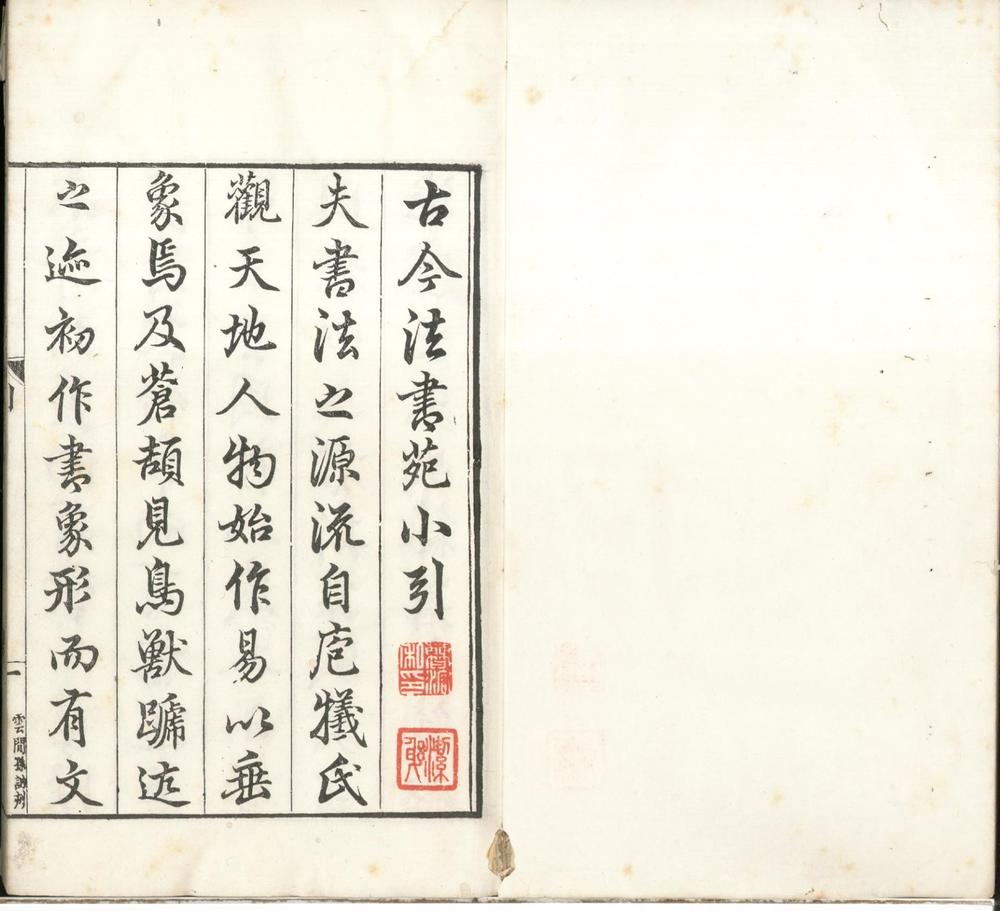 古今法書苑小引
夫書法之源流自庖犧氏
觀天地人物始作易以垂
象焉及蒼頡見鳥獸蹏迒
之迹初作書象形而有文
一
雲間孫刻